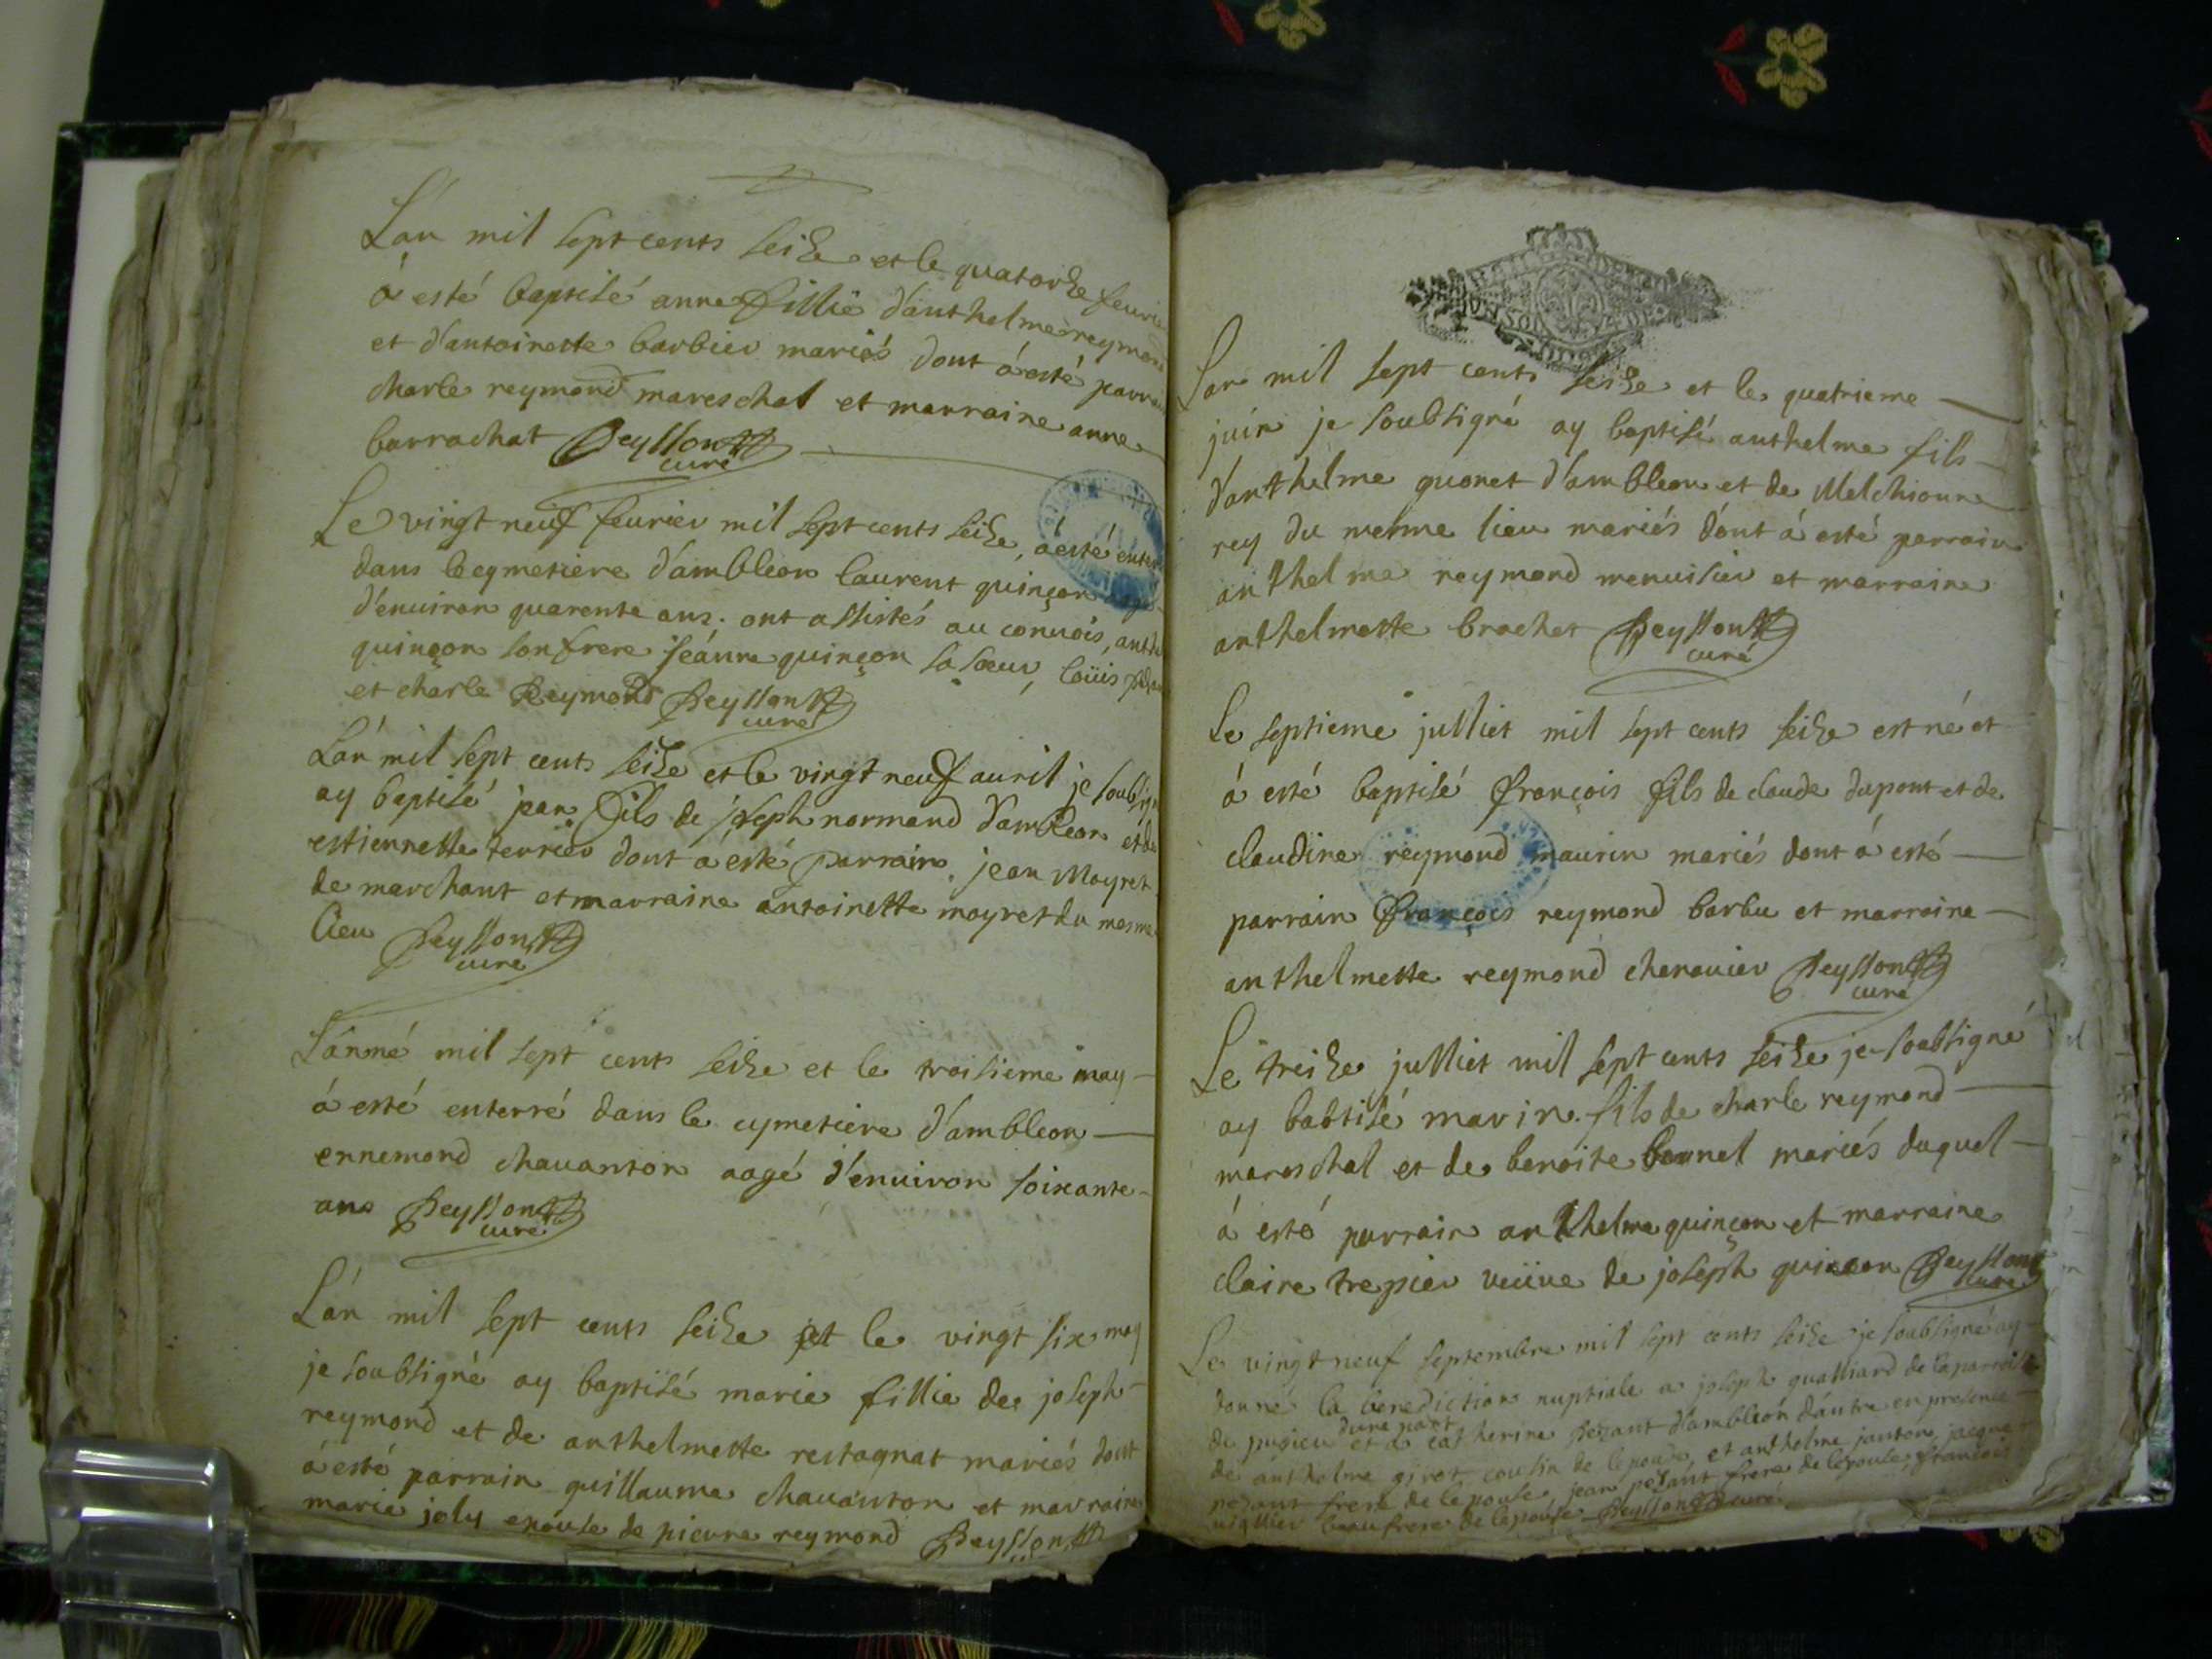 L'an mil sept cents seize et le quatorze feurie
á esté baptisé anne fillie d'anthelme reymond
et d'antoinette barbier mariés dont á esté parrai
charle reymond mareschal et marraine anne
barrachat Peysson
curé
Le vingt neuf feurier mil sept cents seize, á esté enter
dans le cymetiere d'ambleon laurent quinçon
d'enuiron quarente ans. ont assistés au conuois, anth
quinçon son frere jéanne quinçon sa sœur, loüis
et charle Reymond Peysson
curé
L'an mil sept cents seize et le vingt neuf auril je soubsign
ay baptisé jean fils de joseph normand d'ambleon et de
estiennette terrier dont á esté parrain jean Moyret
de marchant et marraine antoinette moyret du mesme
lieu Peysson
curé
L'ánné mil sept cents seize et le troisieme may
á esté enterré dans le cymetiere d'ambleon
ennemond chauanton aagé d'enuiron soixante
ans Peysson
curé
L'án mil sept cents seize et le vingt six may
je soubsigné ay baptisé marie fillie de joseph
reymond et de anthelmette restagnat mariés dont
á esté parrain guillaume chauanton et marraine
marie joly epouse de pierre reymond Peysson
L'an mil sept cents seize et le quatrieme
juin je soubsigné ay baptisé anthelme fils
d'anthelme quonet d'ambleon et de Melchionne
rey du mesme lieu mariés dont á esté parrain
anthelme reymond menuisier et marraine
anthelmette brachet Peysson
curé
Le septieme julliet mil sept cents seize est né et
á esté baptisé françois fils de claude dupont et de
claudine reymond maurin mariés dont á esté
parrain françois reymond barbu et marraine
anthelmette reymond chenauier Peysson
curé
Le treize julliet mil sept cents seize je soubsigné
ay babtisé marin fils de charle reymond
mareschal et de benoite bonnet mariés duquel
á esté parrain anthelme quinçon et marraine
claire trepier veüue de joseph quinçon Peysson
curé
Le vingt neuf septembre mil sept cents seize je soubsigné ay
donné la benediction nuptiale a joseph qualliard de la parroisse
d'une part
de pugieu et a catherine pezant d'ambleon d'autre en presence
de anthelme girot cousin de l'epouse, et anthelme janton, jacque
pezant frere de l'epouse, jean pezant frere de l'epouse, françois
uiguier beaufrere de l'epouse Peysson curé